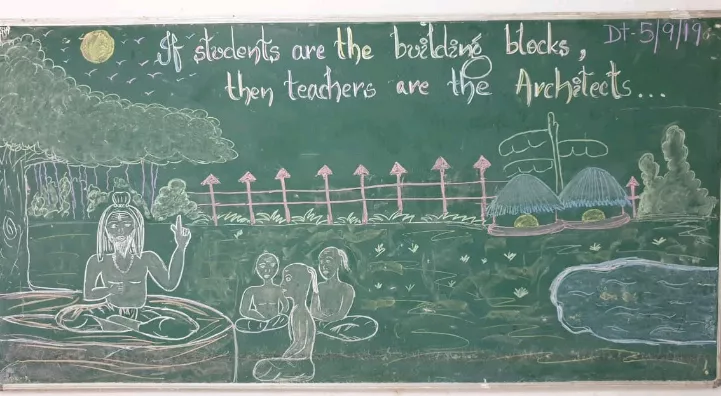 If students are the building blocks,
Dt-5/9/19
then teachers are the Architects...